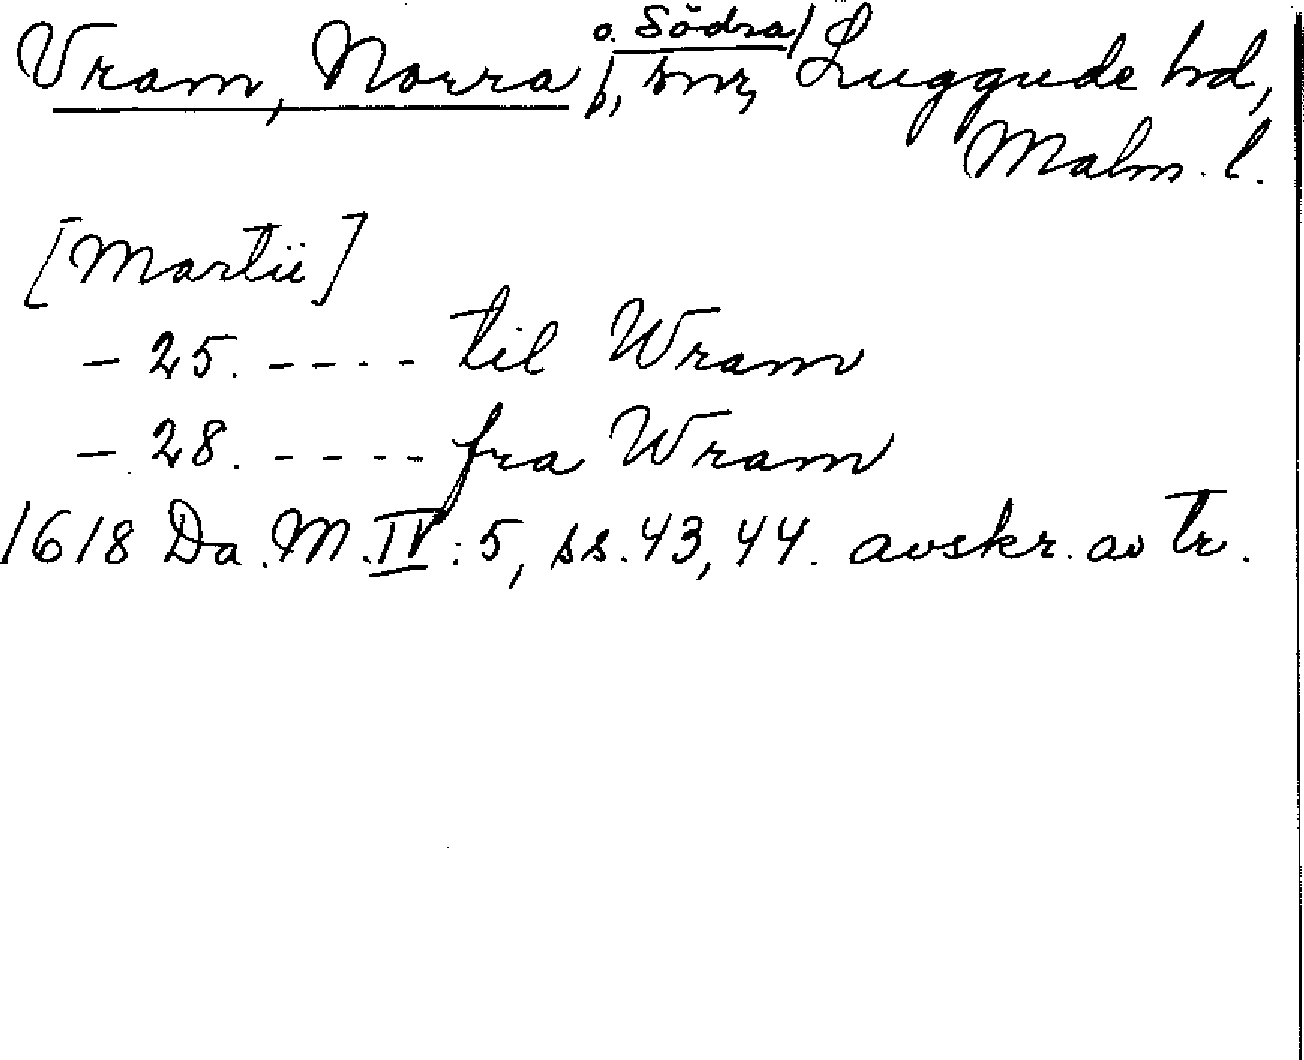 Vram, Norra o. Södra, snr, Luggude hd,
Malm. l.
[Martii]
- 25. ---- til Wram
- 28. ---- fra Wram
1618 Da. M. IV: 5, ss. 43, 44. avskr. av tr.